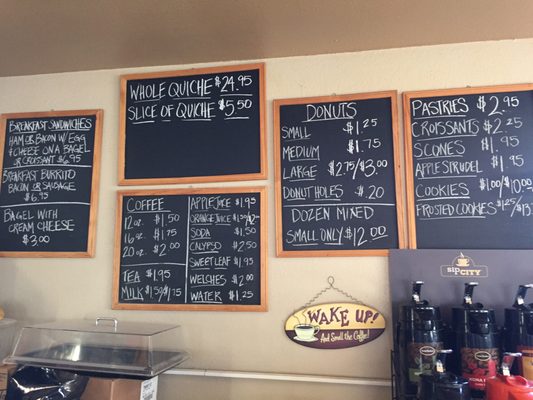 BREAKFAST SANDWICHES
HAM OR BACON W/ EGG
& CHEESE ON A BAGEL
OR CROISSANT $6.95
BREAKFAST BURRITO
BACON OR SAUSAGE
$6.95
BAGEL WITH
CREAM CHEESE
$3.00
WHOLE QUICHE $24.95
SLICE OF QUICHE $5.50
COFFEE
12 oz. $1.50
16 oz. $1.75
20 oz. $2.00
TEA $1.95
MILK $1.50/$1.75
APPLE JUICE $1.95
ORANGE JUICE
SODA $1.50
CALYPSO $2.50
SWEET LEAF $1.95
WELCHES $2.00
WATER $1.25
DONUTS
SMALL $1.25
MEDIUM $1.75
LARGE $2.75/$3.00
DONUT HOLES $.20
DOZEN MIXED
SMALL ONLY $12.00
PASTRIES $2.95
CROISSANTS $2.25
SCONES $1.95
APPLE STRUDEL $1.95
COOKIES $1.00/$10.00
FROSTED COOKIES $1.25/
WAKE UP!
And Smell the Coffee
SIPCITY